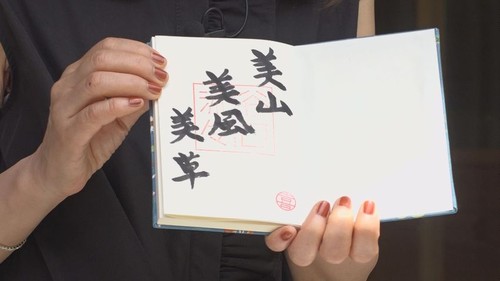 美山
美風
美草